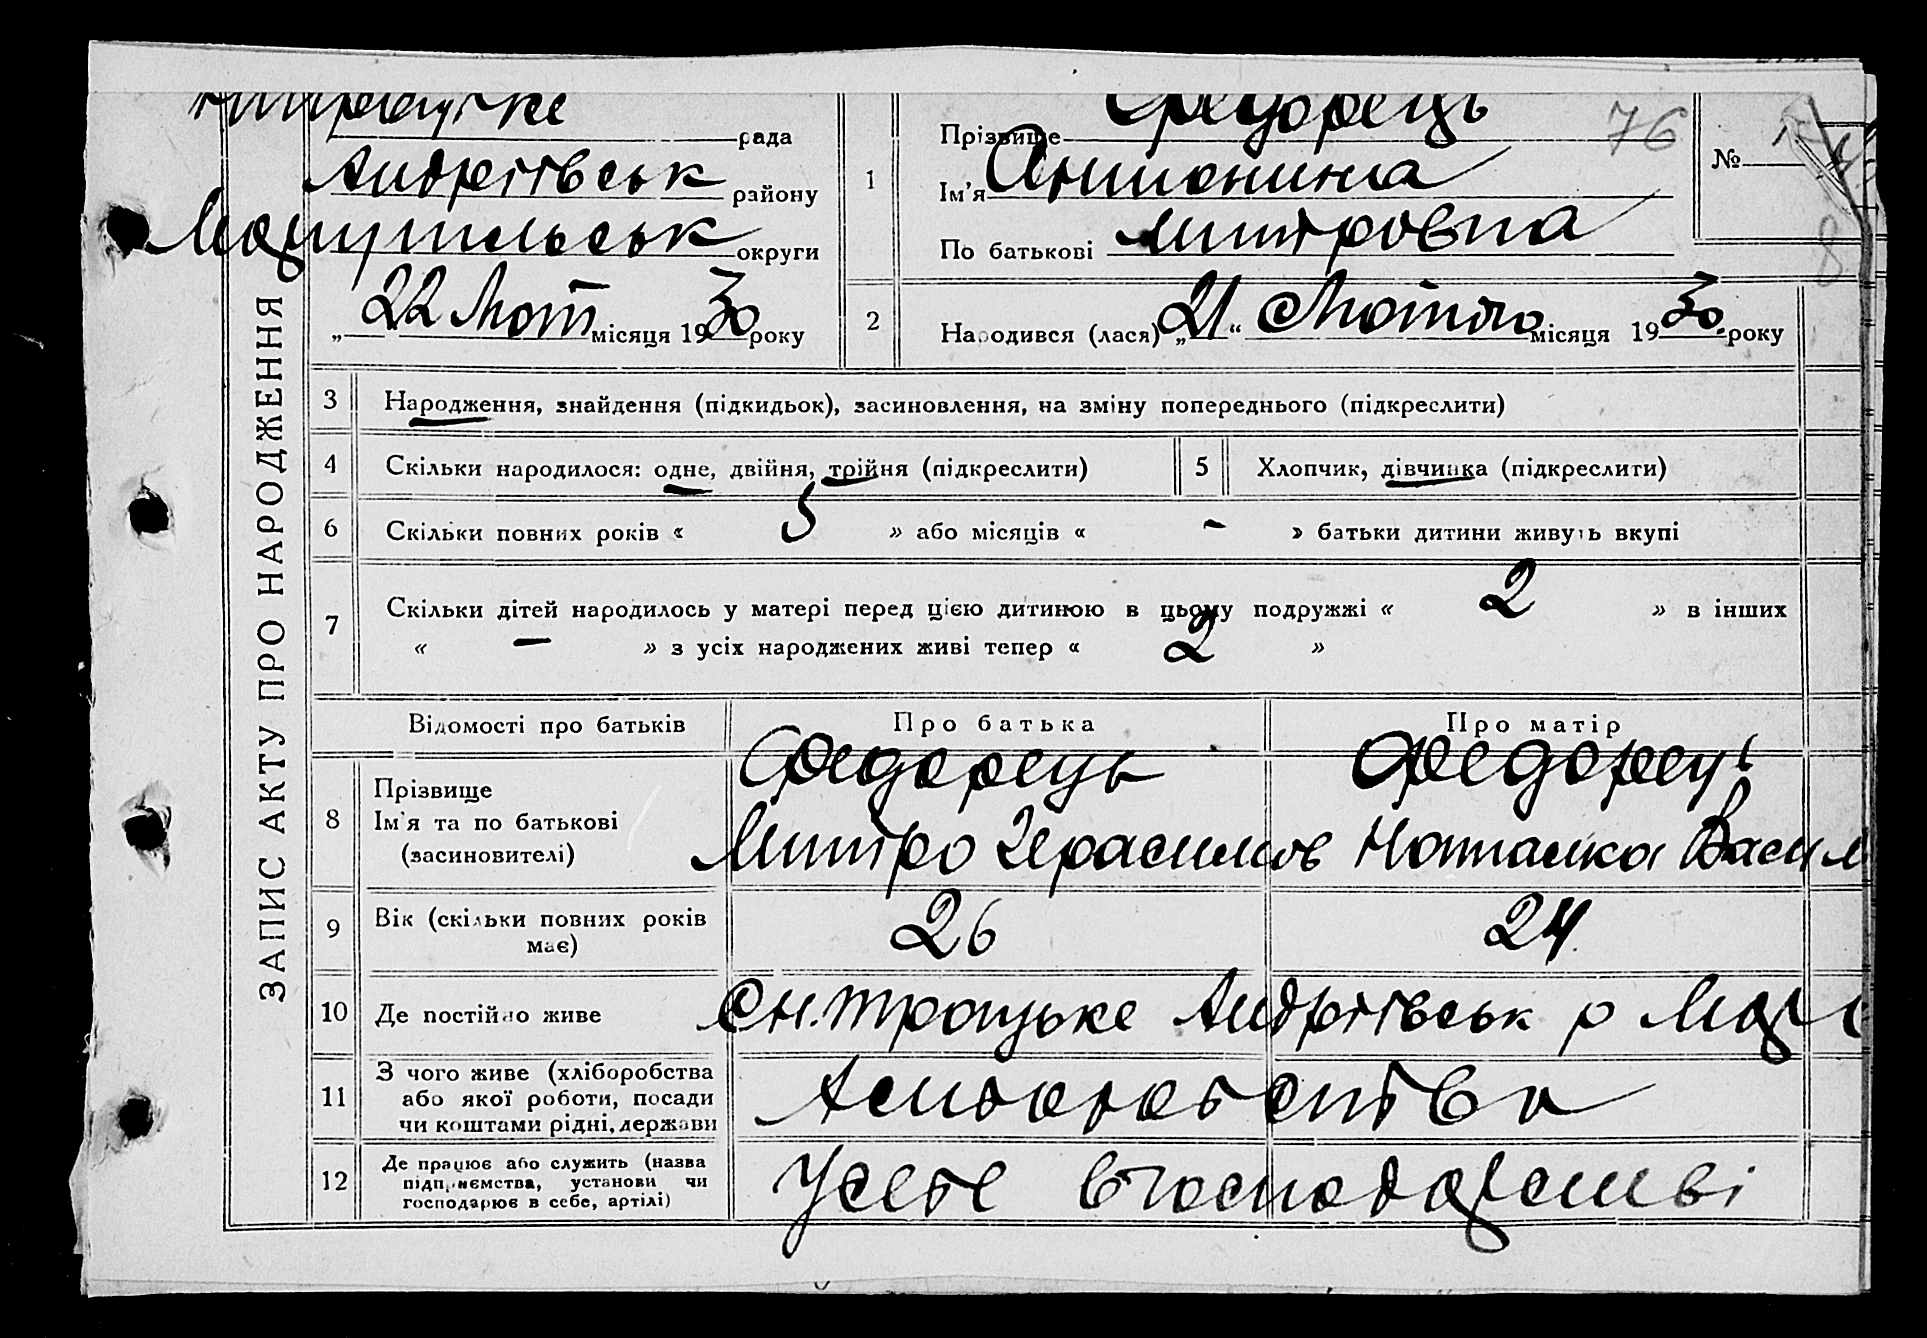 ЗАПИС АКТУ ПРО НАРОДЖЕННЯ
рада
Андріївськ району
Маріупільськ округи
„22 Лют місяця 1930 року
1
Прізвище Федорець
Ім'я Антонина
По батькові Митровна
76
№
8
2
Народився (лася) „21“ Лютого місяця 1930 року
3 Народження, знайдення (підкидьок), засиновлення, на зміну попереднього (підкреслити)
4 Скільки народилося: одне, двійня, трійня (підкреслити)
5 Хлопчик, дівчинка (підкреслити)
6 Скільки повних років « 5 » або місяців « - » батьки дитини живуть вкупі
7 Скільки дітей народилось у матері перед цією дитиною в цьому подружжі « 2 » в інших
« — » з усіх народжених живі тепер « 2 »
Відомості про батьків Про батька Про матір
8 Прізвище
Ім'я та по батькові
(засиновителі)
Федорець
Митро Герасимов
Федорець
Наталка Васил
9 Вік (скільки повних років
має)
26 24
10 Де постійно живе
с. Н. Троцьке Андріївськ р Мар
11 З чого живе (хліборобства
або якої роботи, посади
чи коштами рідні, держави
12 Де працює або служить (назва
підприємства, установи чи
господарює в себе, артілі)
У себе в господарстві